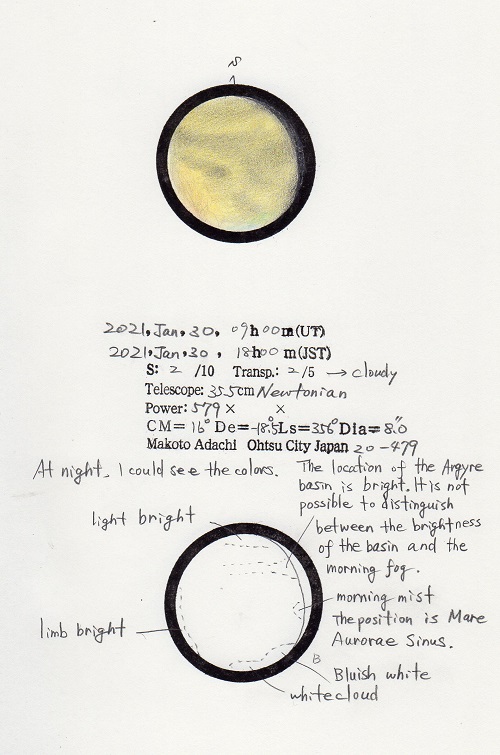 S
2021, Jan, 30, 09h00m(UT)
2021, Jan, 30, 18h00 m(JST)
S: 2 /10 Transp.: 2/5 → cloudy
Telescope: 35.5cm Newtonian
Power: 579× ×
CM= 16° De= -18.5 Ls= 356° Dia= 8.0"
Makoto Adachi Ohtsu City Japan 20-479
At night. I could see the colors.
The location of the Argyre
basin is bright. It is not
possible to distinguish
between the brightness
of the basin and the
morning fog.
light bright
morning mist
The position is Mare
Aurorae Sinus.
limb bright
B
Bluish white
white cloud